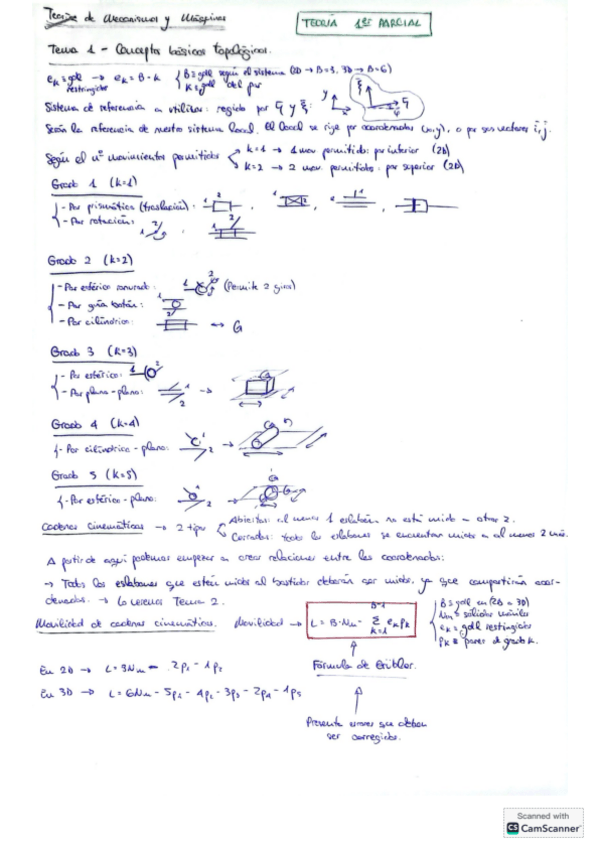 Teoría de Mecanismos y Máquinas
TEORÍA 1er PARCIAL
Tema 1 - Conceptos básicos topológicos.
eₖ ≡ gdl restringidos → eₖ = B - k { B ≡ gdl según el sistema (2D → B=3, 3D → B=6)
K ≡ gdl del par
Sistema de referencia a utilizar: regido por
Según el nº movimientos permitidos
k=1 → 1 mov. permitido: par inferior (2D)
k=2 → 2 mov. permitidos: par superior (2D)
Grado 1 (k=1)
- Par prismático (traslación):
- Par rotación:
Grado 2 (k=2)
- Par esférico ranurado: (Permite 2 giros)
- Par guía botón:
- Par cilíndrico: → G
Grado 3 (k=3)
- Par esférico:
- Par plano-plano:
Grado 4 (k=4)
- Par cilíndrico-plano:
Grado 5 (k=5)
- Par esférico-plano:
Cadenas cinemáticas → 2 tipos
Abiertas: al menos 1 eslabón no está unido a otros 2.
Cerradas: todos los eslabones se encuentran unidos a al menos 2 más.
A partir de aquí podemos empezar a crear relaciones entre las coordenadas:
→ Todos los eslabones que están unidos al bastidor deberán ser unidos, ya que compartirán coor-
denadas. → Lo veremos Tema 2.
Movilidad de cadenas cinemáticas. Movilidad → L = B·Nm - Σ eₖpₖ
B-1
k=1
B ≡ gdl en (2D o 3D)
Nm ≡ sólidos móviles
eₖ ≡ gdl restringidos
pₖ ≡ pares de grado k.
En 2D → L = 3Nm - 2p₁ - 1p₂
Fórmula de Grübler.
En 3D → L = 6Nm - 5p₁ - 4p₂ - 3p₃ - 2p₄ - 1p₅
Presenta errores que deben
ser corregidos.
Scanned with
CS CamScanner